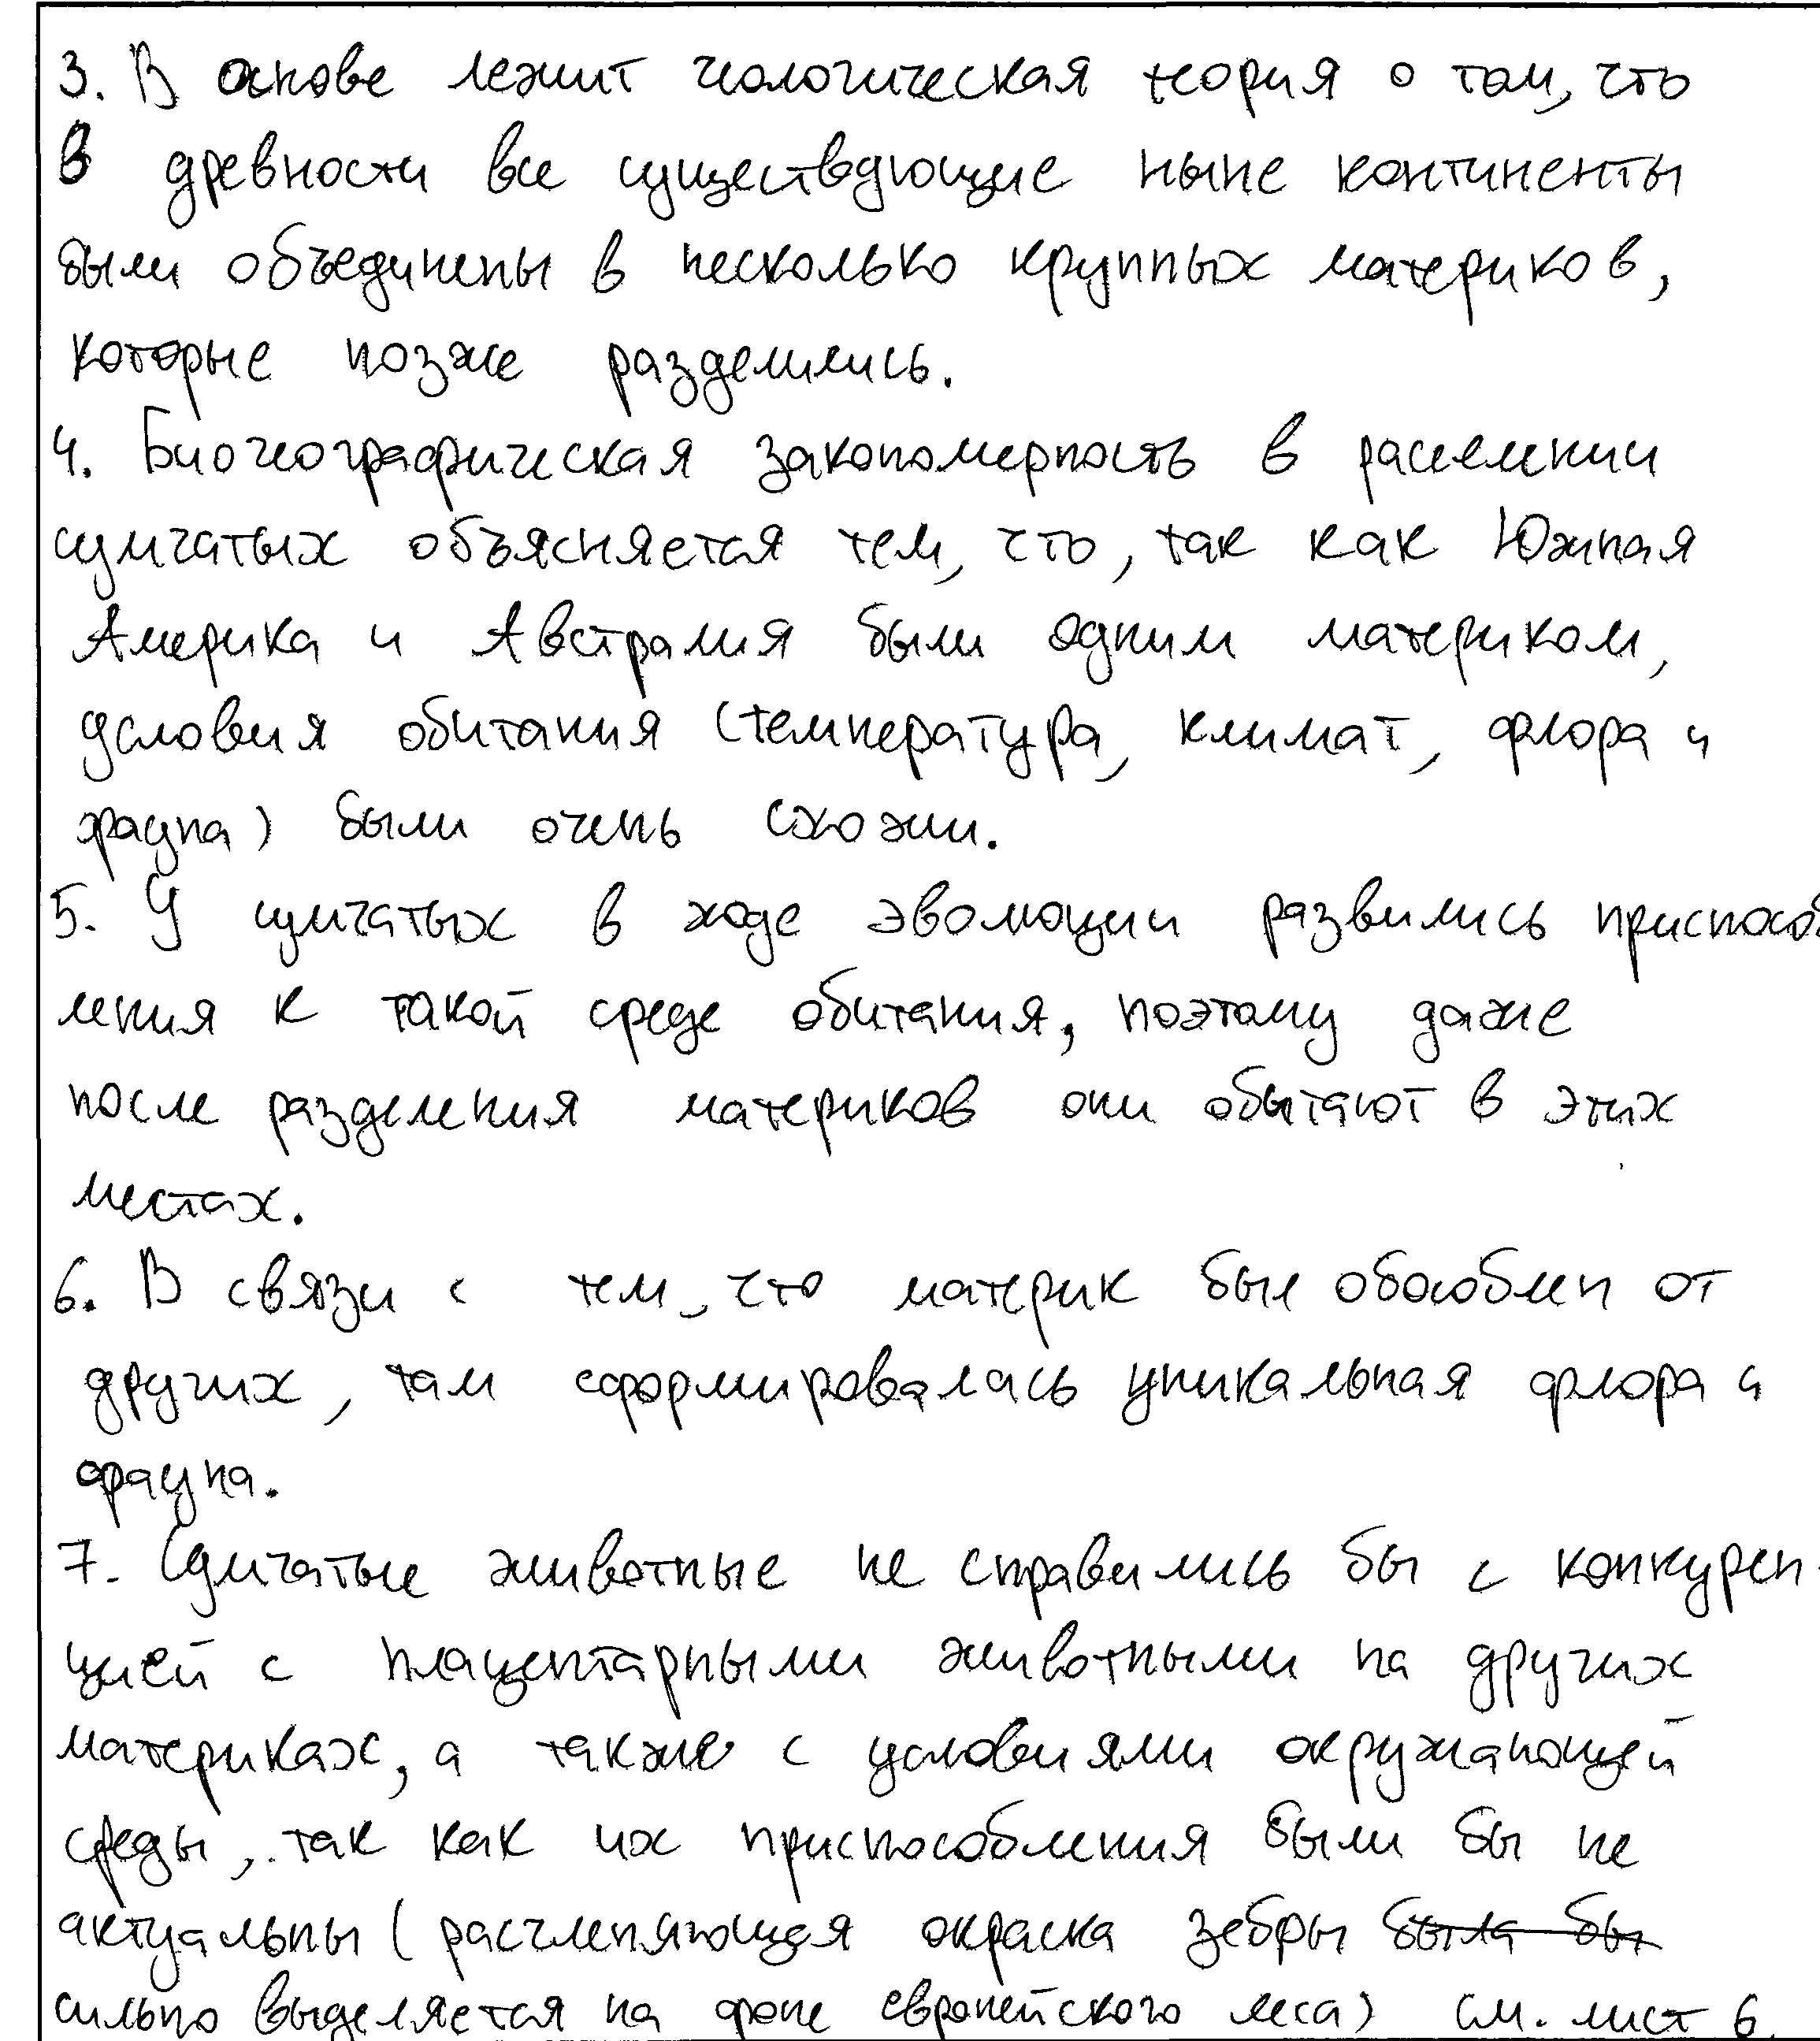 3. В основе лежит геологическая теория о том, что
в древности все существующие ныне континенты
были объединены в несколько крупных материков,
которые позже разделились.
4. Биогеографическая закономерность в расселении
сумчатых объясняется тем, что, так как Южная
Америка и Австралия были одним материком,
условия обитания (температура, климат, флора и
фауна) были очень схожи.
5. У сумчатых в ходе эволюции развились приспособ
ления к такой среде обитания, поэтому даже
после разделения материков они обытают в этих
местах.
6. В связи с тем, что материк был обособлен от
других, там сформировалась уникальная флора и
фауна.
7. Сумчатые животные не справились бы с конкурен-
цией с плацентарными животными на других
материках, а также с условиями окружающей
среды, так как их приспособления были бы не
актуальны (расчленяющая окраска зебры была бы
сильно выделяется на фоне европейского леса) см. лист 6